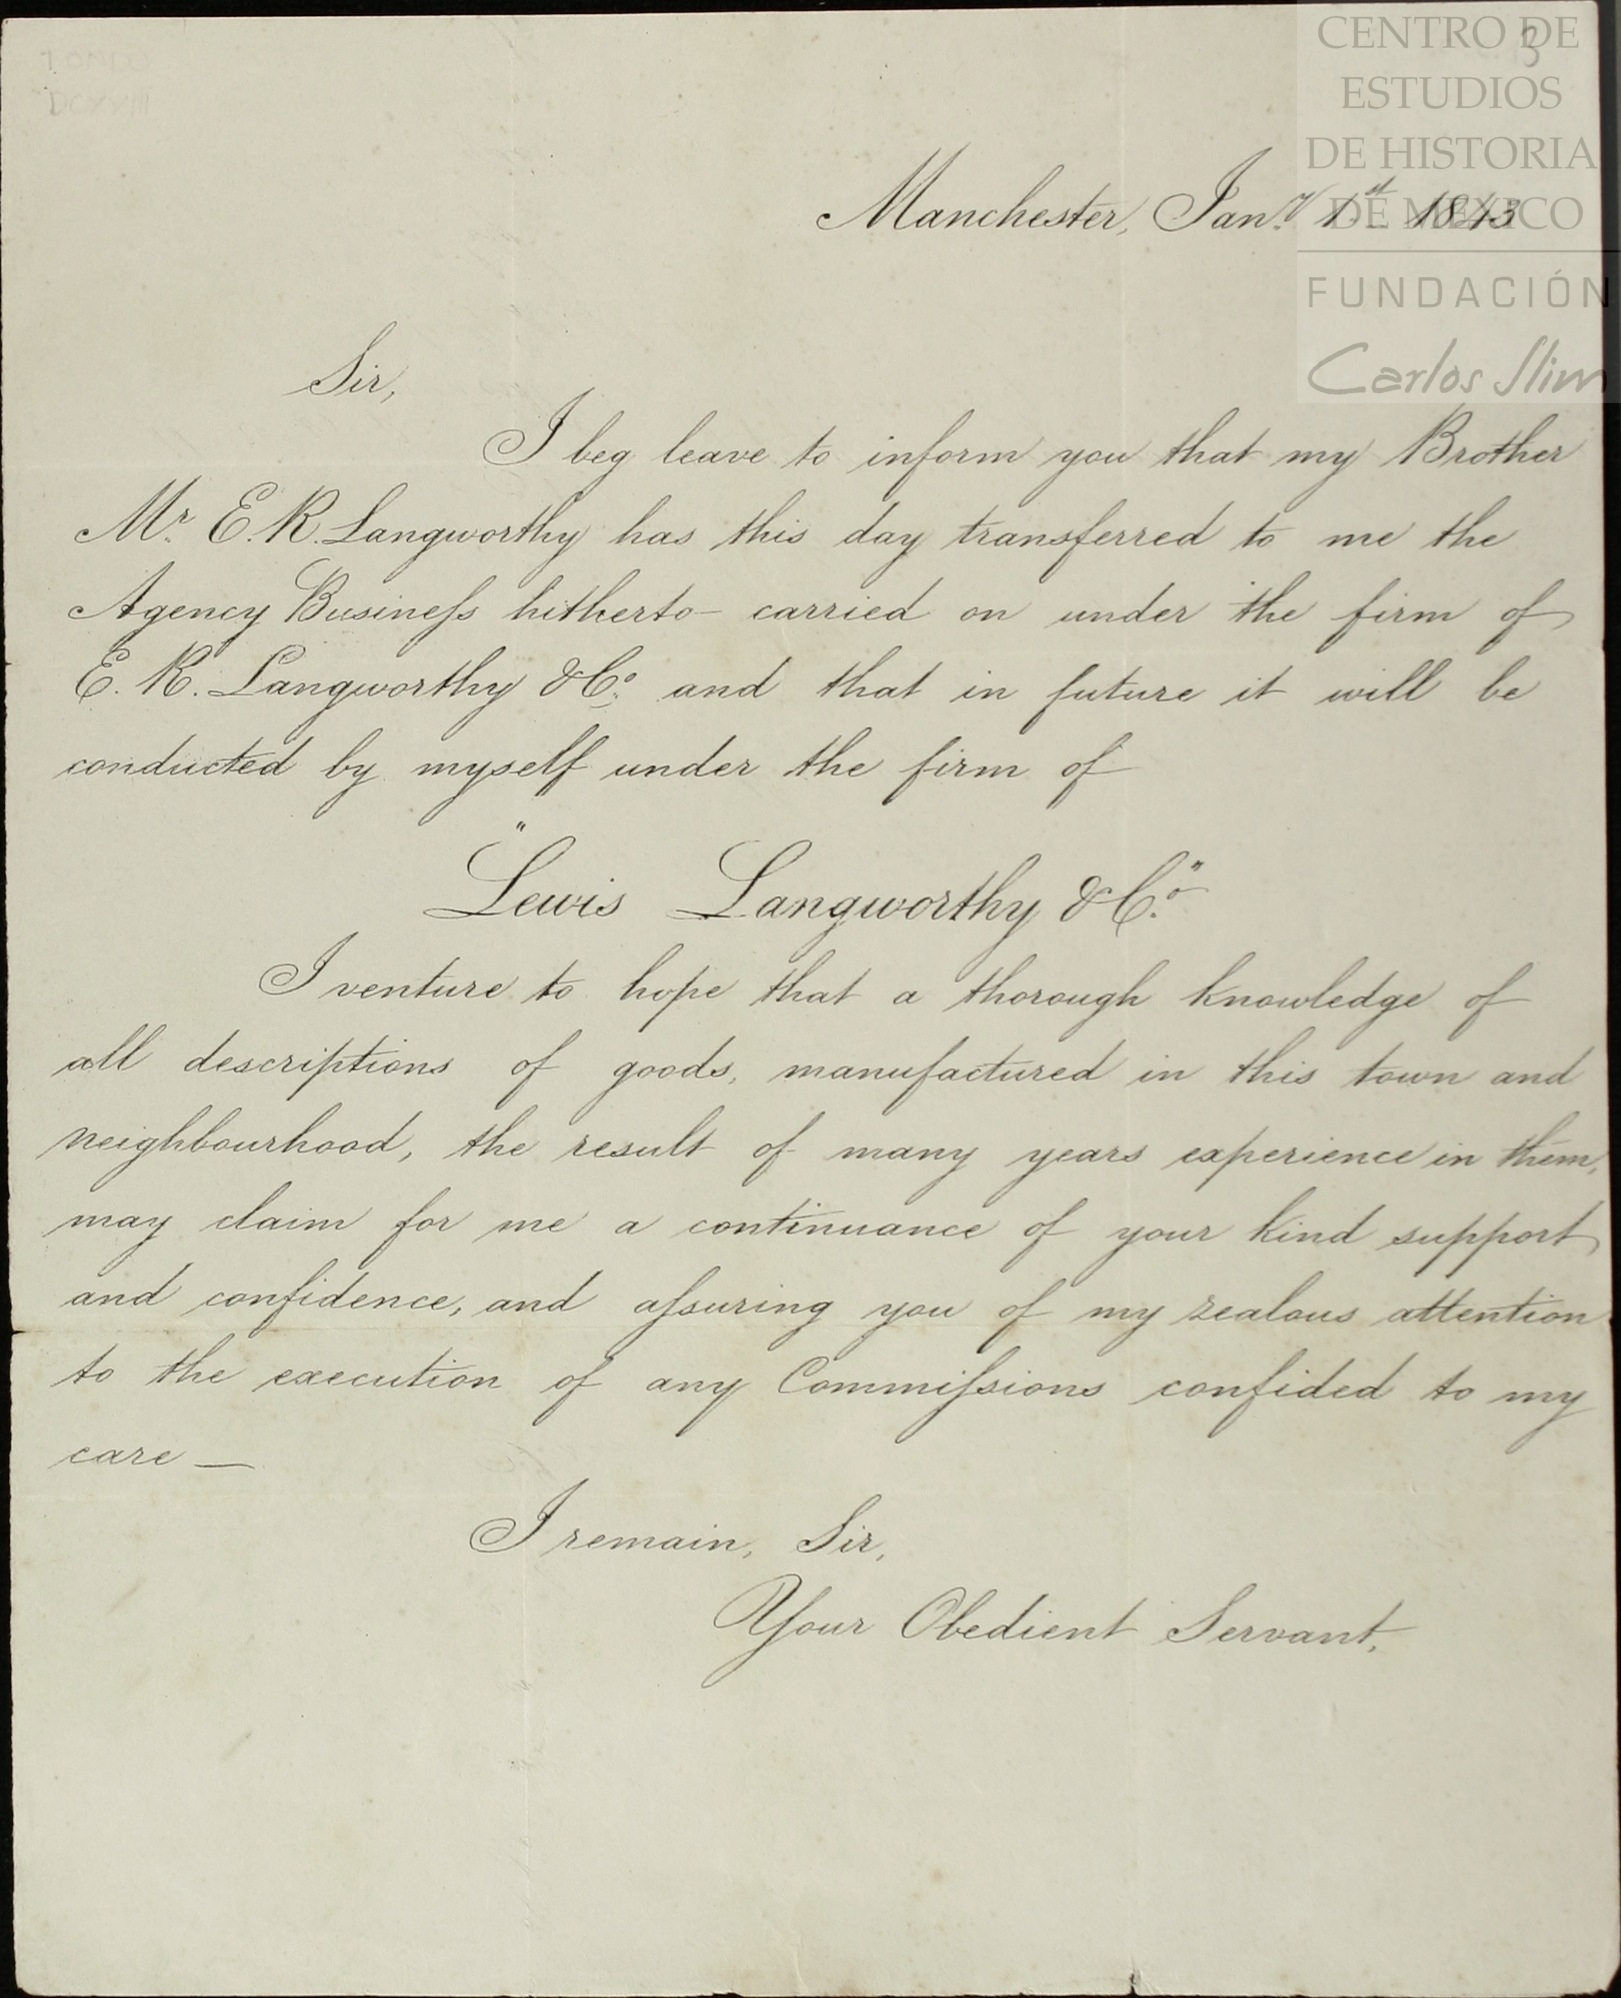 FONDO
DCXVIII
3
CENTRO DE
ESTUDIOS
DE HISTORIA
DE MEXICO
FUNDACIÓN
Carlos Slim
Manchester, Jan.y 1st 1843
Sir,
I beg leave to inform you that my Brother
Mr. E. R. Langworthy has this day transferred to me the
Agency Busineſs hitherto carried on under the firm of
E. R. Langworthy & Co. and that in future it will be
conducted by myself under the firm of
"Lewis Langworthy & Co."
I venture to hope that a thorough knowledge of
all descriptions of goods, manufactured in this town and
neighbourhood, the result of many years experience in them,
may claim for me a continuance of your kind support
and confidence, and aſsuring you of my zealous attention
to the execution of any Commiſsions confided to my
care —
I remain, Sir,
Your Obedient Servant,